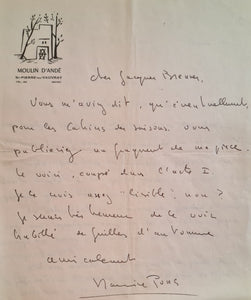 MOULIN D'ANDÉ
ST-PIERRE-DU-VAUVRAY
cher Jacques Brenner,
Vous m'aviez dit, qu'éventuellement,
pour les Cahiers des saisons, vous
publieriez un fragment de ma pièce.
Le voici, coupé dans l'acte I.
Je le crois assez "lisible", non ?
Je serais très heureux de le voir
habillé de feuilles d'automne
amicalement
Maurice Pons